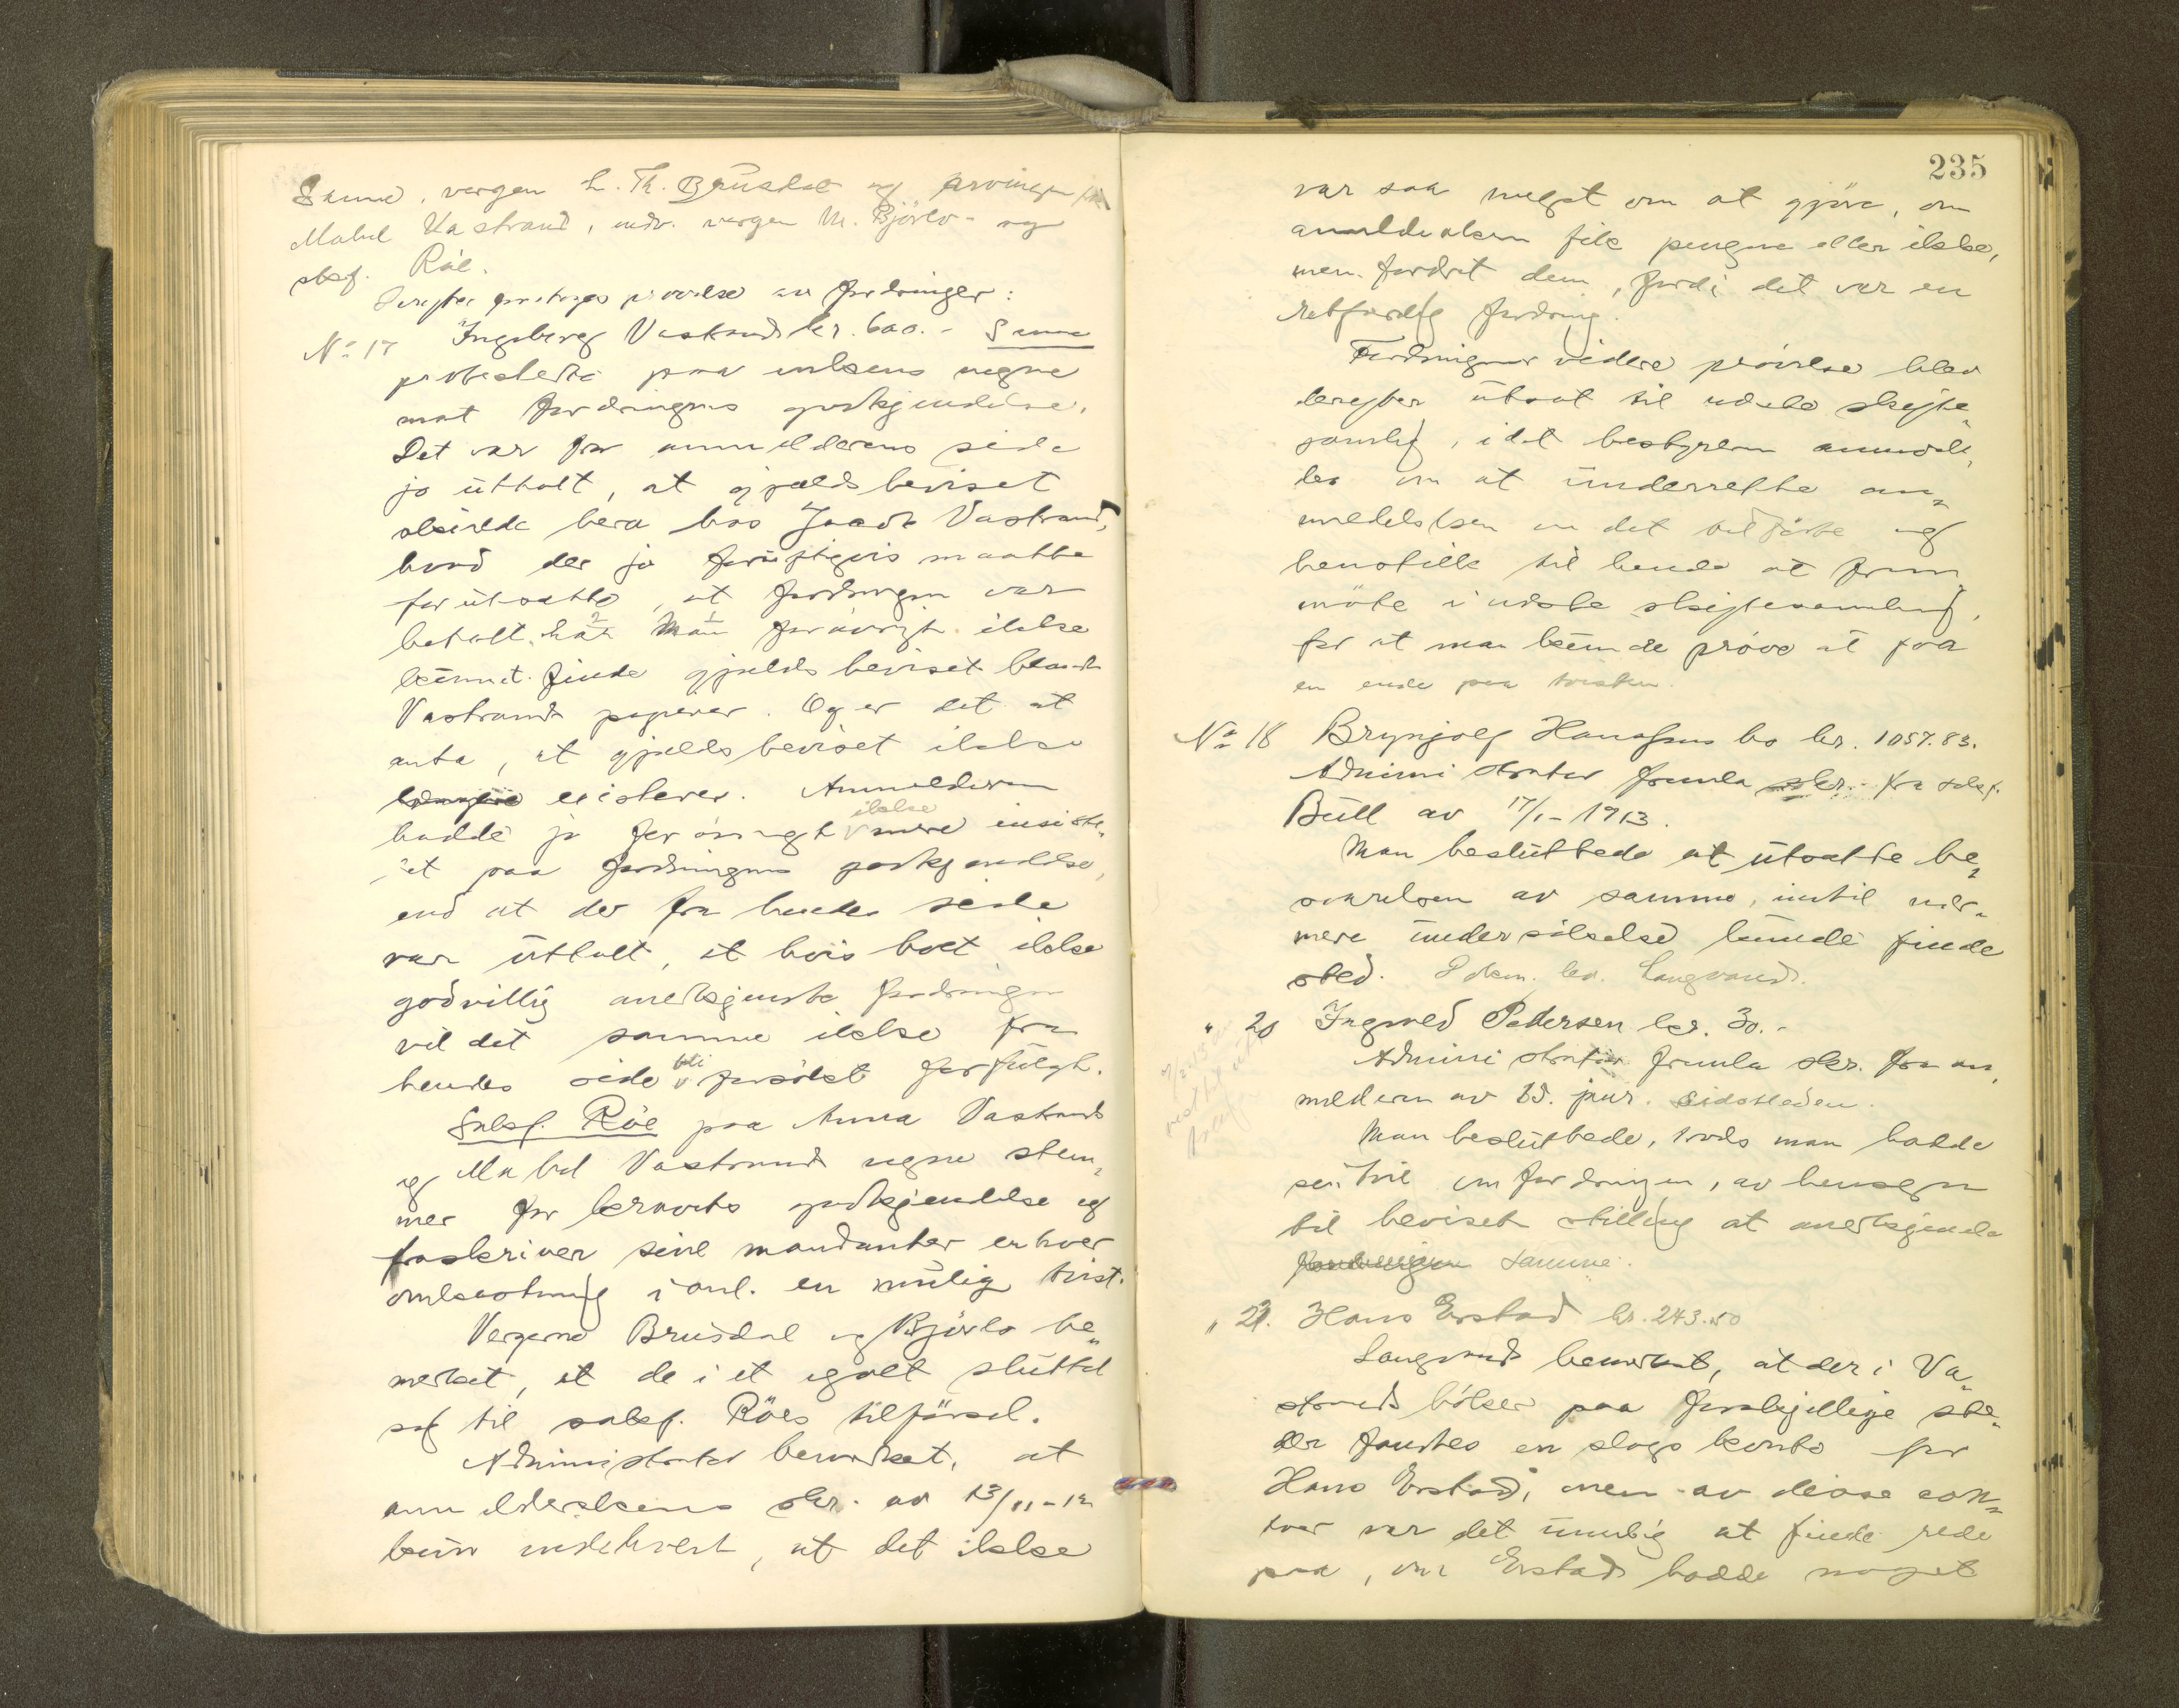 Sanne, vergen L. Th. Brusdal og arvingen frk.
Mabel Vastrand, vergen M. Björlo og
sksf. Röe.
Derefter foretoges prövelse av fordringer:
No 17 Ingeborg Vastrand kr. 600.- Sanne
protesterte paa enkens vegne
mot fordringens godkjendelse.
Det var fra anmelderens side
jo uttalt, at gjældsbeviset
skulde bero hos Jacob Vastrand,
hvad der jo fornuftigvis maatte
forutsætte, at fordringen var
betalt. har 2 Man 1 forövrigt ikke
kunnet finde gjældsbeviset blandt
Vastrands papirer. Og er det at
anta, at gjældsbeviset ikke
existerer. Anmelderen
hadde jo forövrigt ikke mere insiste-
ret paa fordringens godkjendelse,
end at der fra hendes side
var uttalt, at hvis boet ikke
godvillig anerkjendte fordringen
vil det samme ikke fra
hendes side bli forsökt forfulgt.
Saksf. Röe paa Anna Vastrands
og Mabel Vastrands vegne stem-
mer for kravets godkjendelse og
fraskriver sine mandanter enhver
omkostning i anl. en mulig tvist.
Vergerne Brusdal og Björlo be-
merket, at de i et og alt sluttet
sig til saksf. Röes tilförsel.
Administrator bemerket, at
anmelderskens skr. av 13/11-12
kun indeholdt, at det ikke
235
var saa meget om at gjöre, om
anmeldersken fik pengene eller ikke,
men fordret dem, fordi det var en
retfærdig fordring.
Fordringens videre prövelse blev
derefter utsat til næste skifte-
samling, idet bestyreren anmod-
des om at underrette an-
meldelsen om det tilförte og
henstille til hende at frem-
möte i næste skiftesamling,
for at man kunde pröve at faa
en ende paa tvisten.
No 18 Brynjolf Hanafsens bo kr. 1057.83.
Administrator fremla skr. fra saksf.
Bull av 17/1-1913.
Man besluttede at utsætte be-
svarelsen av samme, indtil nær-
mere undersökelse kunde finde
sted. Langvand.
" 20 Ingvald Pedersen kr. 30.-
Administrator fremla skr. fra an-
melderen av 23. jan. sidstleden.
Man besluttede, trods man hadde
sin tvil om fordringen, av hensyn
til bevisets stilling at anerkjende
fordringen samme.
" 21. Hans Erstad kr. 243.50
Langvand bemerket, at der i Va-
strands böker paa forskjellige ste-
der fandtes en slags konto for
Hans Erstad, men av disse con-
toer var det umulig at finde rede
paa, om Erstad hadde noget